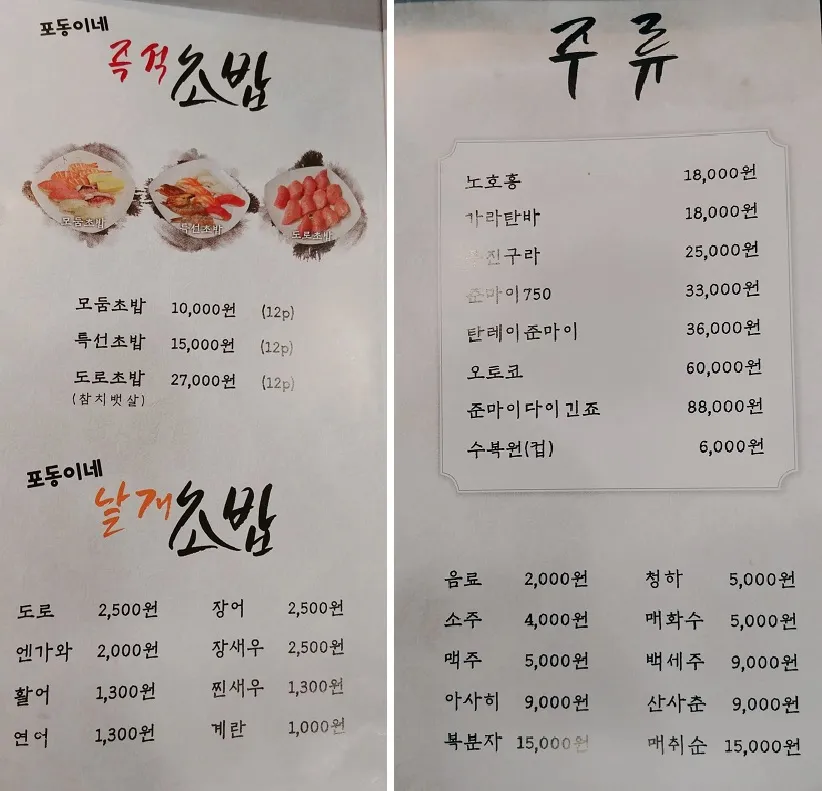 포동이네
즉석초밥
모둠초밥 특선초밥 도로초밥
모둠초밥 10,000원 (12p)
특선초밥 15,000원 (12p)
도로초밥 27,000원 (12p)
(참치뱃살)
포동이네
낱개초밥
도로 2,500원 장어 2,500원
엔가와 2,000원 장새우 2,500원
활어 1,300원 찐새우 1,300원
연어 1,300원 계란 1,000원
주류
노호홍 18,000원
가라탄바 18,000원
진구라 25,000원
준마이750 33,000원
탄레이준마이 36,000원
오토코 60,000원
준마이다이긴죠 88,000원
수복원(컵) 6,000원
음료 2,000원 청하 5,000원
소주 4,000원 매화수 5,000원
맥주 5,000원 백세주 9,000원
아사히 9,000원 산사춘 9,000원
복분자 15,000원 매취순 15,000원